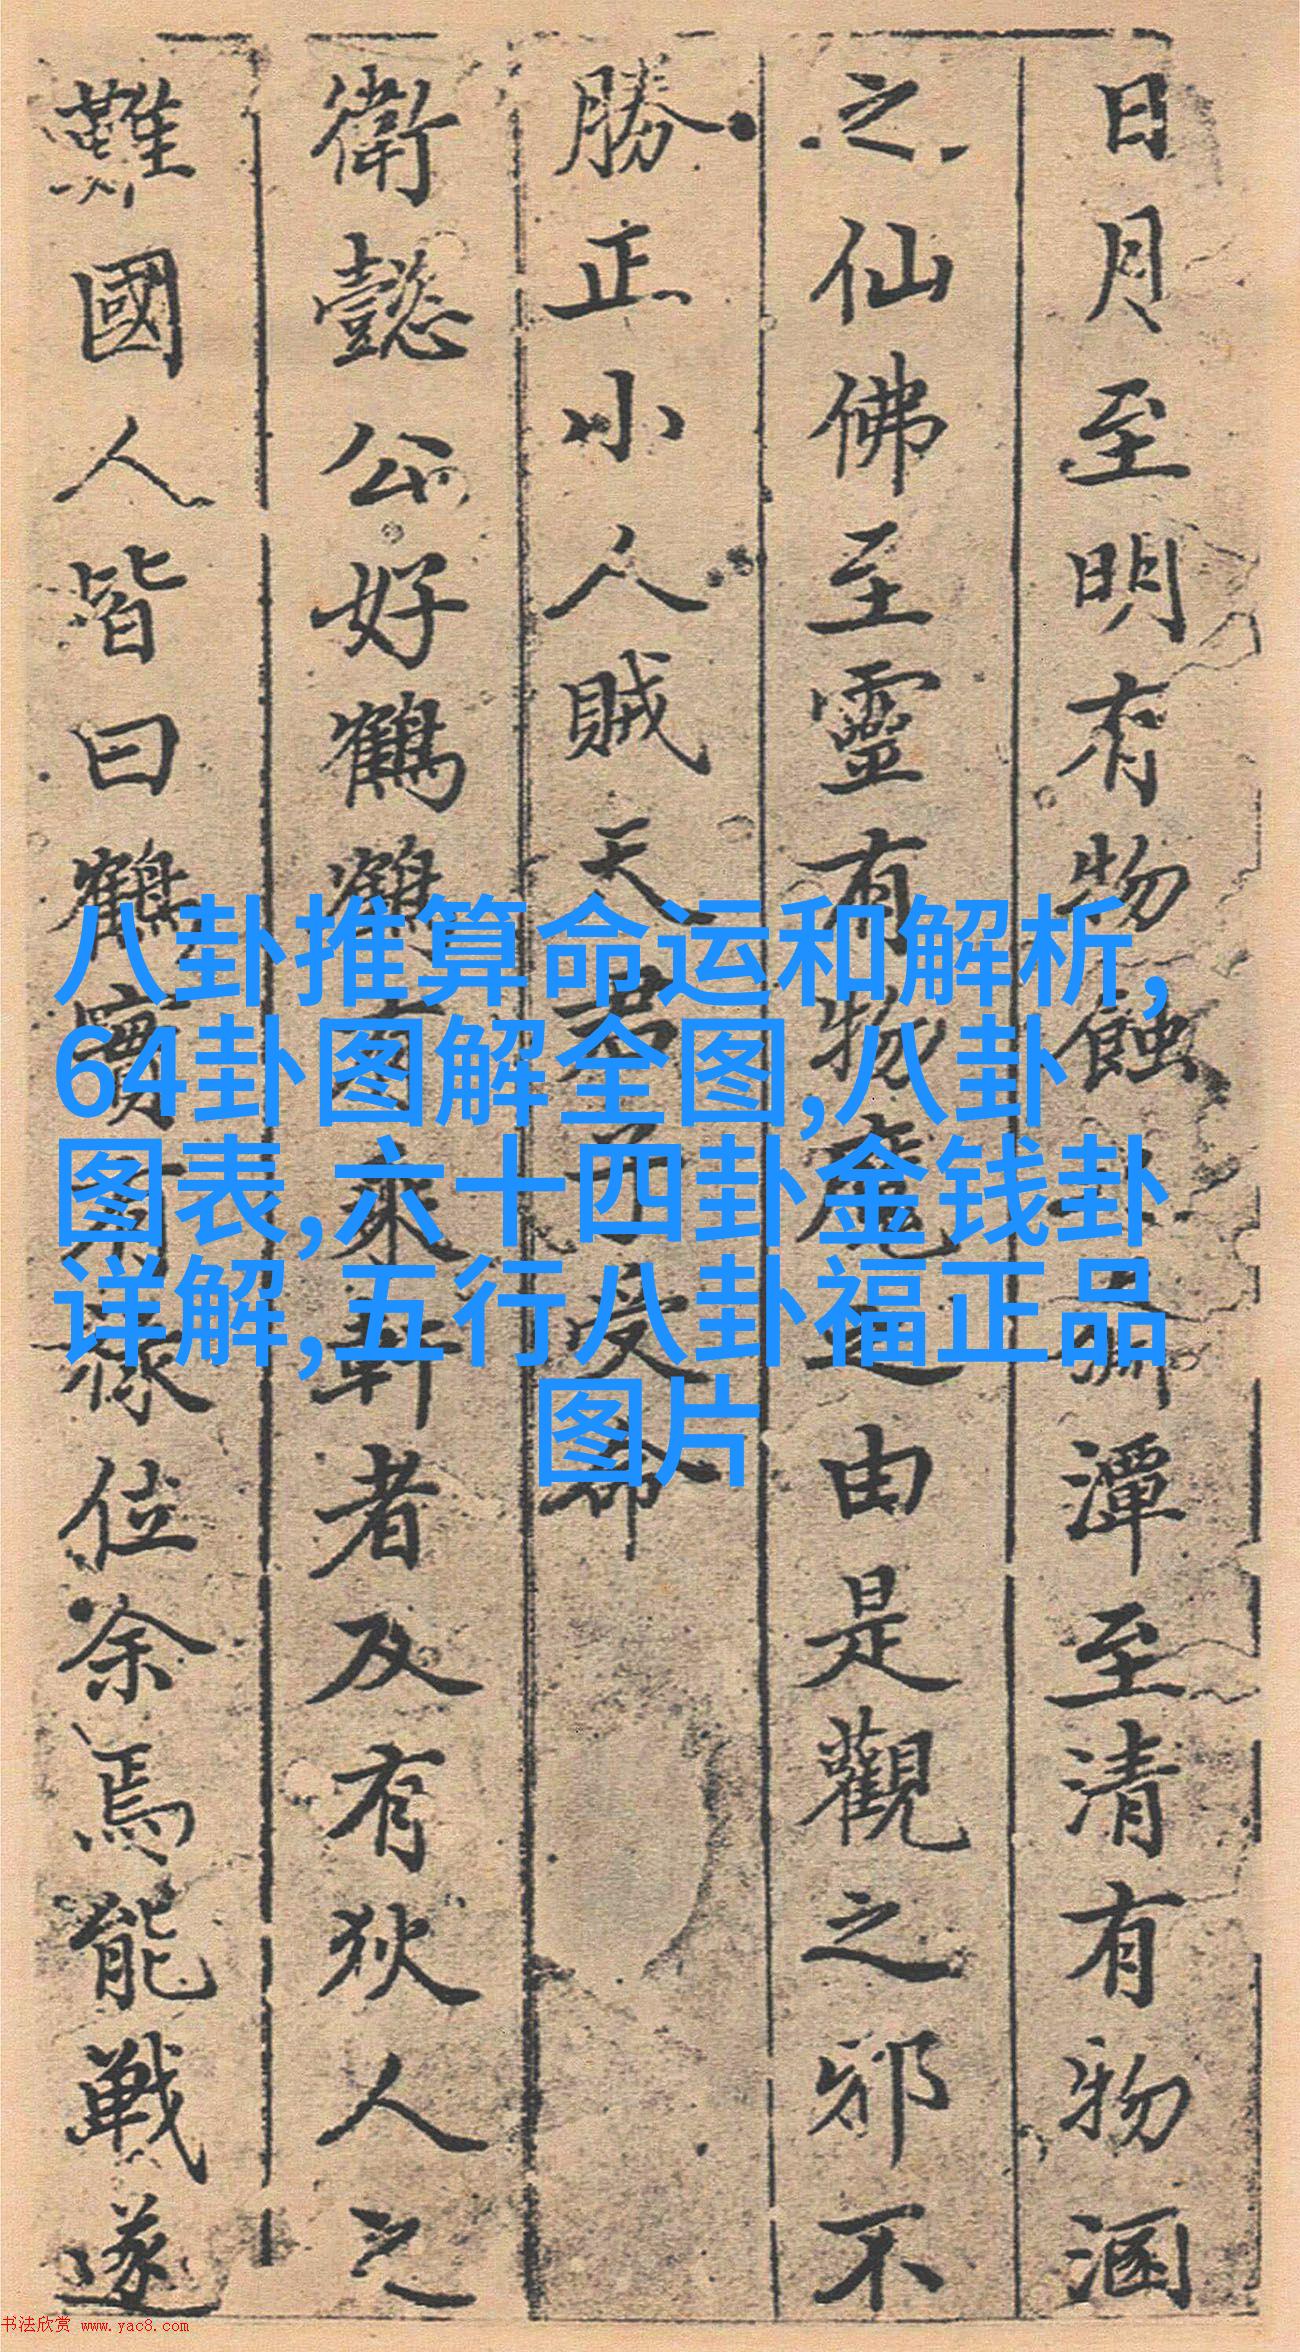 日月至明有物蝕
潭至清有物涵
之仙佛至靈有物
由是觀之邪不
勝正小人賊天君子受命
衛懿公好鶴鶴有乘軒者及有狄人之
難國人皆曰鶴實有祿位余焉能戰遂
八卦推算命运和解析,
64卦图解全图,八卦
图表,六十四卦金钱卦
详解,五行八卦福正品
图片
书法欣赏 www.yac8.com